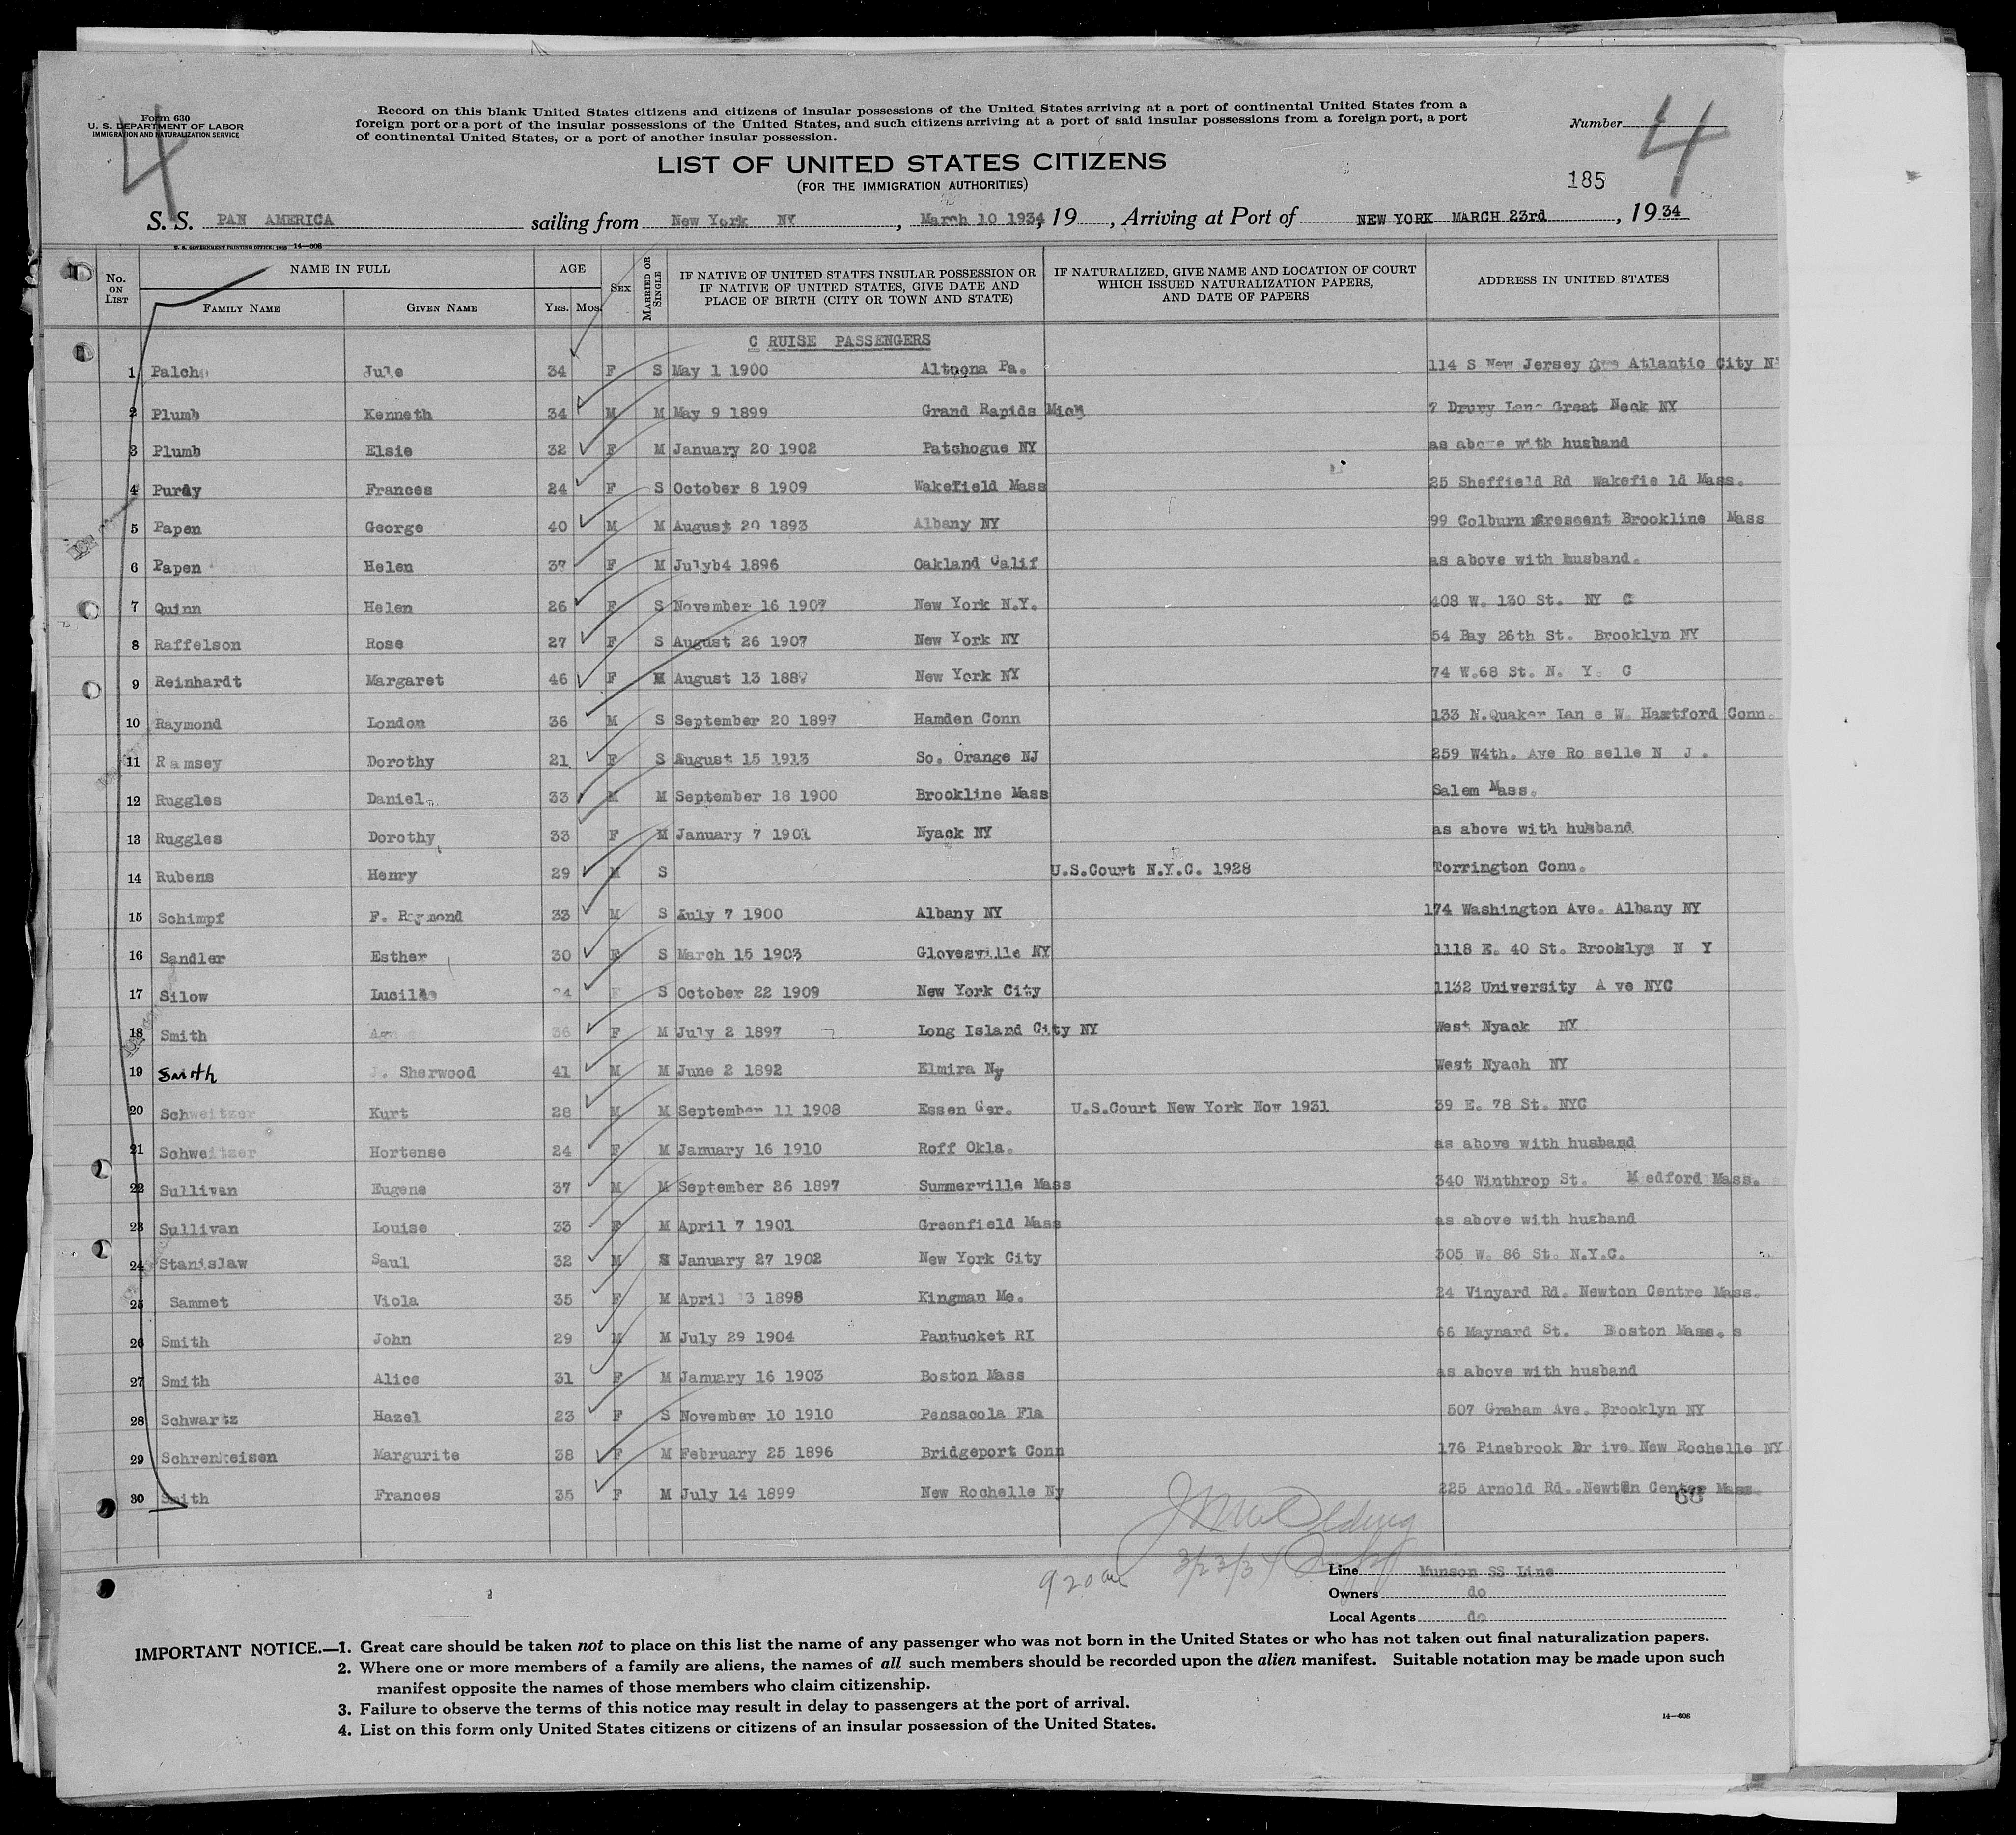 Form 630
U. S. DEPARTMENT OF LABOR
IMMIGRATION AND NATURALIZATION SERVICE
4
Record on this blank United States citizens and citizens of insular possessions of the United States arriving at a port of continental United States from a
foreign port or a port of the insular possessions of the United States, and such citizens arriving at a port of said insular possessions from a foreign port, a port
of continental United States, or a port of another insular possession.
Number 4
LIST OF UNITED STATES CITIZENS
(FOR THE IMMIGRATION AUTHORITIES)
185
S. S. PAN AMERICA sailing from New York NY, March 10 1934, 19, Arriving at Port of NEW YORK MARCH 23rd, 1934
U. S. GOVERNMENT PRINTING OFFICE: 1933 14—608
No. ON LIST NAME IN FULL FAMILY NAME GIVEN NAME AGE YRS. MOS. SEX MARRIED OR SINGLE IF NATIVE OF UNITED STATES INSULAR POSSESSION OR IF NATIVE OF UNITED STATES, GIVE DATE AND PLACE OF BIRTH (CITY OR TOWN AND STATE) IF NATURALIZED, GIVE NAME AND LOCATION OF COURT WHICH ISSUED NATURALIZATION PAPERS, AND DATE OF PAPERS ADDRESS IN UNITED STATES
C RUISE PASSENGERS
1 Palcho Jule 34 F S May 1 1900 Altoona Pa. 114 S New Jersey Ave Atlantic City N
2 Plumb Kenneth 34 M M May 9 1899 Grand Rapids Mich 7 Drury Lane Great Neck NY
3 Plumb Elsie 32 F M January 20 1902 Patchogue NY as above with husband
4 Purdy Frances 24 F S October 8 1909 Wakefield Mass 25 Sheffield Rd Wakefie ld Mass.
5 Papen George 40 M M August 20 1893 Albany NY 99 Colburn Crescent Brookline Mass
6 Papen Helen 37 F M Julyb4 1896 Oakland Calif as above with husband.
7 Quinn Helen 26 F S November 16 1907 New York N.Y. 408 W. 130 St. NY C
8 Raffelson Rose 27 F S August 26 1907 New York NY 54 Bay 26th St. Brooklyn NY
9 Reinhardt Margaret 46 F M August 13 1887 New York NY 74 W.68 St. N. Y. C
10 Raymond London 36 M S September 20 1897 Hamden Conn 133 N.Quaker Lan e W. Hartford Conn.
11 Ramsey Dorothy 21 F S August 15 1913 So. Orange NJ 259 W4th. Ave Ro selle N J.
12 Ruggles Daniel 33 M M September 18 1900 Brookline Mass Salem Mass.
13 Ruggles Dorothy 33 F M January 7 1901 Nyack NY as above with husband
14 Rubens Henry 29 M S U.S.Court N.Y.C. 1928 Torrington Conn.
15 Schimpf F. Raymond 33 M S July 7 1900 Albany NY 174 Washington Ave. Albany NY
16 Sandler Esther 30 F S March 15 1903 Glovesville NY 1118 E. 40 St. Brooklyn N Y
17 Silow Lucille 24 F S October 22 1909 New York City 1132 University A ve NYC
18 Smith 36 F M July 2 1897 Long Island City NY West Nyack NY
19 Smith J. Sherwood 41 M M June 2 1892 Elmira Ny West Nyach NY
20 Schweitzer Kurt 28 M M September 11 1908 Essen Ger. U.S.Court New York Nov 1931 39 E. 78 St. NYC
21 Schweitzer Hortense 24 F M January 16 1910 Roff Okla. as above with husband
22 Sullivan Eugene 37 M M September 26 1897 Summerville Mass 340 Winthrop St. M edford Mass.
23 Sullivan Louise 33 F M April 7 1901 Greenfield Mass as above with husband
24 Stanislaw Saul 32 M S January 27 1902 New York City 305 W. 86 St. N.Y.C.
25 Sammet Viola 35 F M April 13 1898 Kingman Me. 24 Vinyard Rd. Newton Centre Mass.
26 Smith John 29 M M July 29 1904 Pantucket RI 66 Maynard St. Boston Mass. s
27 Smith Alice 31 F M January 16 1903 Boston Mass as above with husband
28 Schwartz Hazel 23 F S November 10 1910 Pensacola Fla 507 Graham Ave. Brooklyn NY
29 Schrenkeisen Margurite 38 F M February 25 1896 Bridgeport Conn 176 Pinebrook Dr ive New Rochelle NY
30 Smith Frances 35 F M July 14 1899 New Rochelle Ny 225 Arnold Rd. Newton Center Mass
60
920 am 3/23/34
Line Munson SS Line
Owners do
Local Agents do
IMPORTANT NOTICE.—1. Great care should be taken not to place on this list the name of any passenger who was not born in the United States or who has not taken out final naturalization papers.
2. Where one or more members of a family are aliens, the names of all such members should be recorded upon the alien manifest. Suitable notation may be made upon such
manifest opposite the names of those members who claim citizenship.
3. Failure to observe the terms of this notice may result in delay to passengers at the port of arrival.
4. List on this form only United States citizens or citizens of an insular possession of the United States.
14—608